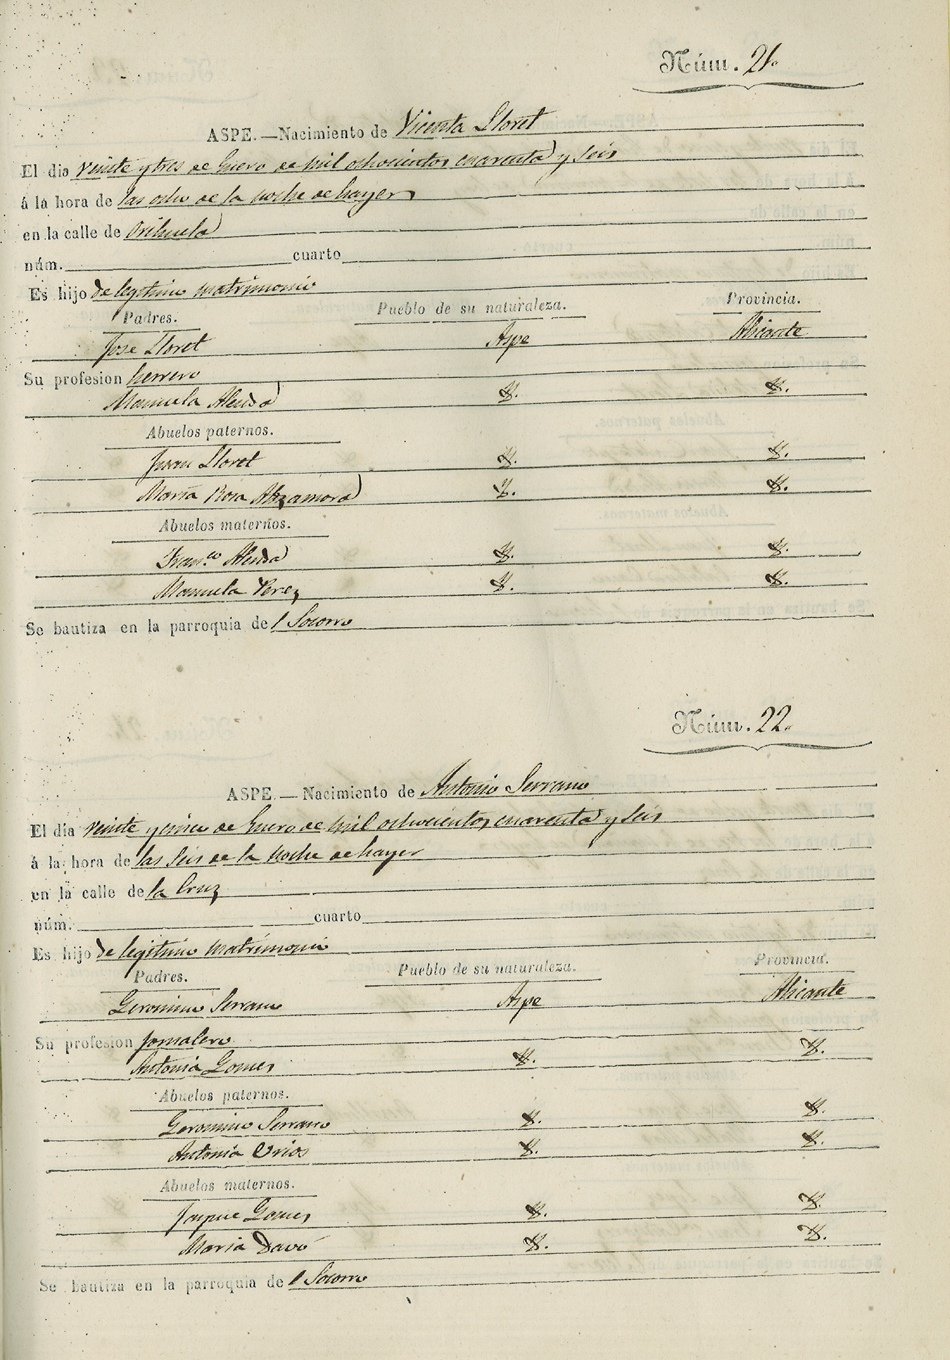 Núm. 21.
ASPE.—Nacimiento de Vicenta Lloret
El dia veinte y tres de Enero de mil ochocientos cuarenta y seis
á la hora de las ocho de la noche de hayer
en la calle de Orihuela
núm. cuarto
Es hijo de legitimo matrimonio
Padres. Pueblo de su naturaleza. Provincia.
Jose Lloret Aspe Alicante
Su profesion herrero
Manuela Alenda Y. Y.
Abuelos paternos.
Juan Lloret Y. Y.
Maria Rosa Alzamora Y. Y.
Abuelos maternos.
Fran.co Alenda Y. Y.
Manuela Perez Y. Y.
Se bautiza en la parroquia del Socorro
Núm. 22.
ASPE.—Nacimiento de Antonio Serrano
El dia veinte y cinco de Enero de mil ochocientos cuarenta y seis
á la hora de las seis de la noche de hayer
en la calle de la Cruz
núm. cuarto
Es hijo de legitimo matrimonio
Padres. Pueblo de su naturaleza. Provincia.
Geronimo Serrano Aspe Alicante
Su profesion jornalero
Antonia Gomes Y. Y.
Abuelos paternos.
Geronimo Serrano Y. Y.
Antonia Urios Y. Y.
Abuelos maternos.
Jayme Gomes Y. Y.
Maria Davó Y. Y.
Se bautiza en la parroquia de l Socorro